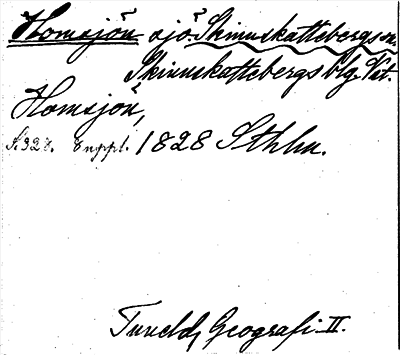 Homsjön sjö. Skinnskattebergs sn.
Skinnskattebergs blg. Vst.
Homsjön,
S. 328. Suppl. 1828 Sthlm.
Tuneld, Geografi II.